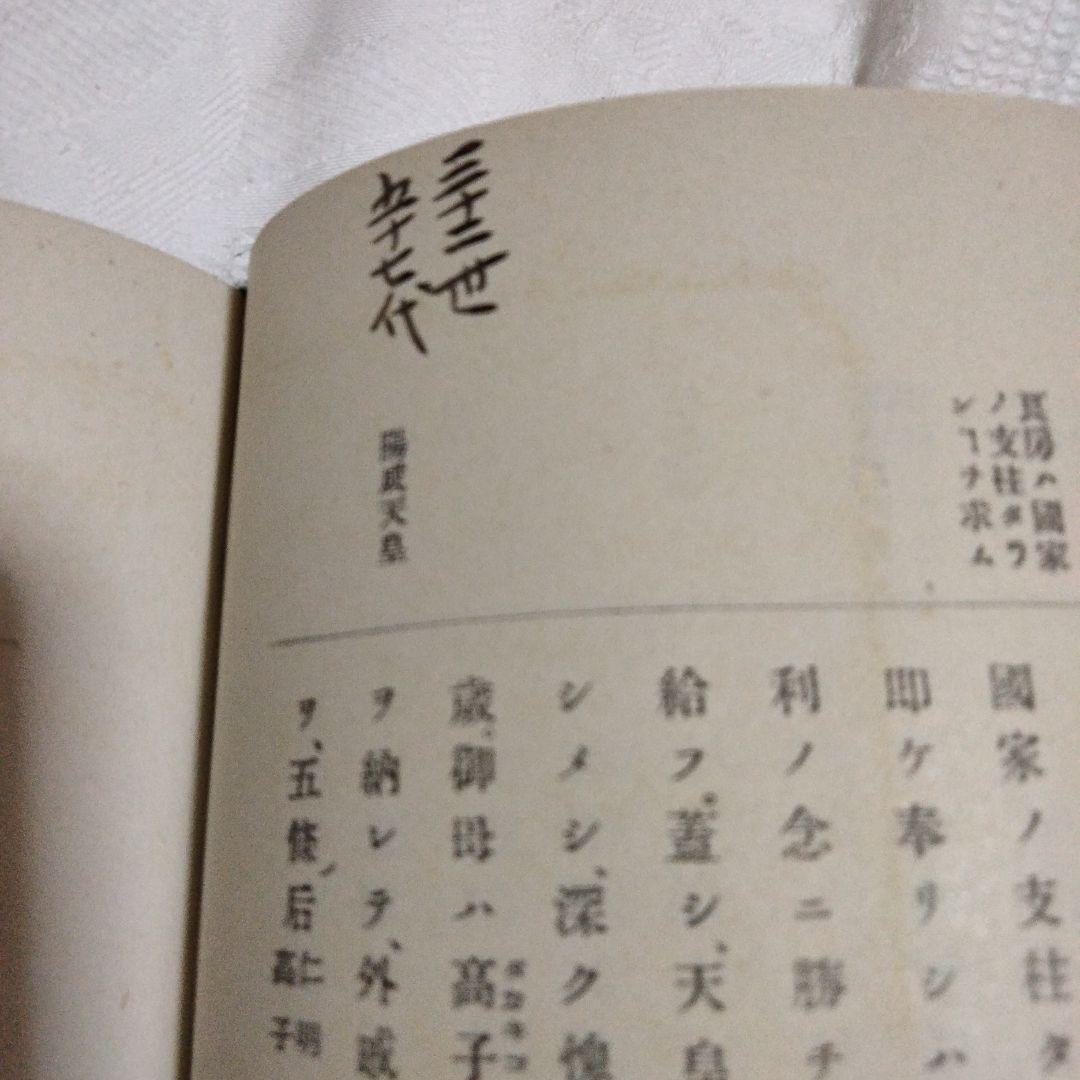 三十二世
五十七代
良房ハ國家
ノ支柱タラ
ンヿヲ求ム
陽成天皇
國家ノ支柱タ
即ケ奉リシハ
利ノ念ニ勝チ
給フ。蓋シ、天皇
シメシ、深ク愧
歳、御母ハ高子
ヲ納レテ、外戚
ヲ、五條ノ后
仁明
高子